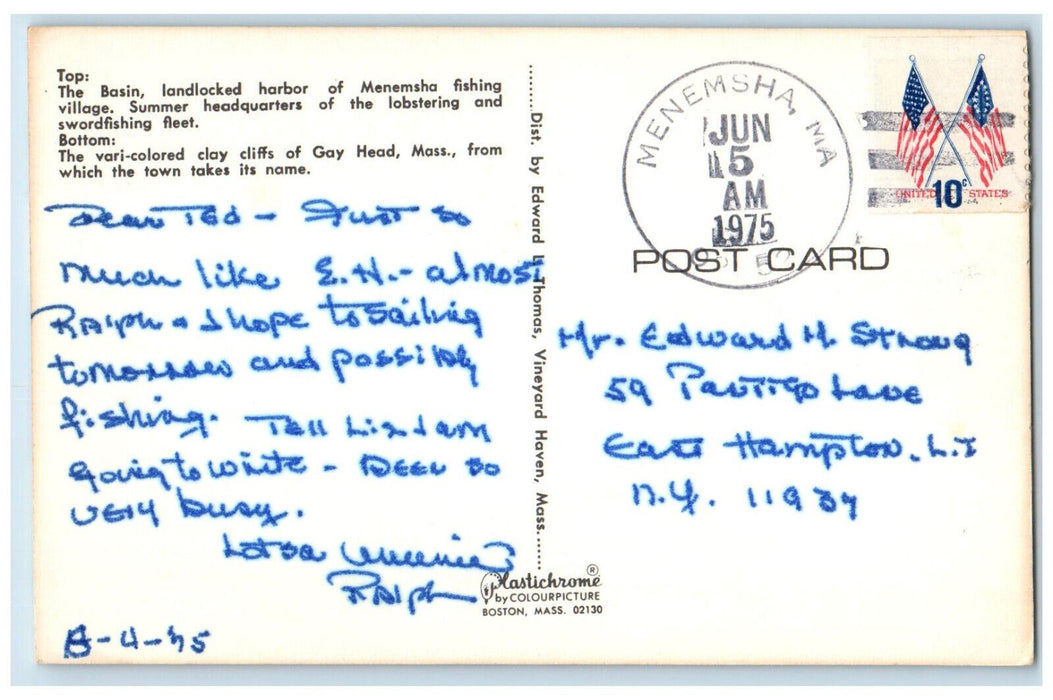 Top:
The Basin, landlocked harbor of Menemsha fishing
village. Summer headquarters of the lobstering and
swordfishing fleet.
Bottom:
The vari-colored clay cliffs of Gay Head, Mass., from
which the town takes its name.
Dear Ted - Just so
much like E.H. - almost
Ralph & I hope to sailing
tomorrow and possibly
fishing. Tell Liz I am
going to write - Been so
very busy.
Lotsa
Ralph
-4-75
Dist. by Edward L. Thomas, Vineyard Haven, Mass.
Plastichrome ®
by COLOURPICTURE
BOSTON, MASS. 02130
MENEMSHA, MA
JUN
5
AM
1975
UNITED 10c STATES
POST CARD
Mr. Edward M. Strong
59 Pantigo Lane
East Hampton, L.I
N.Y. 11937